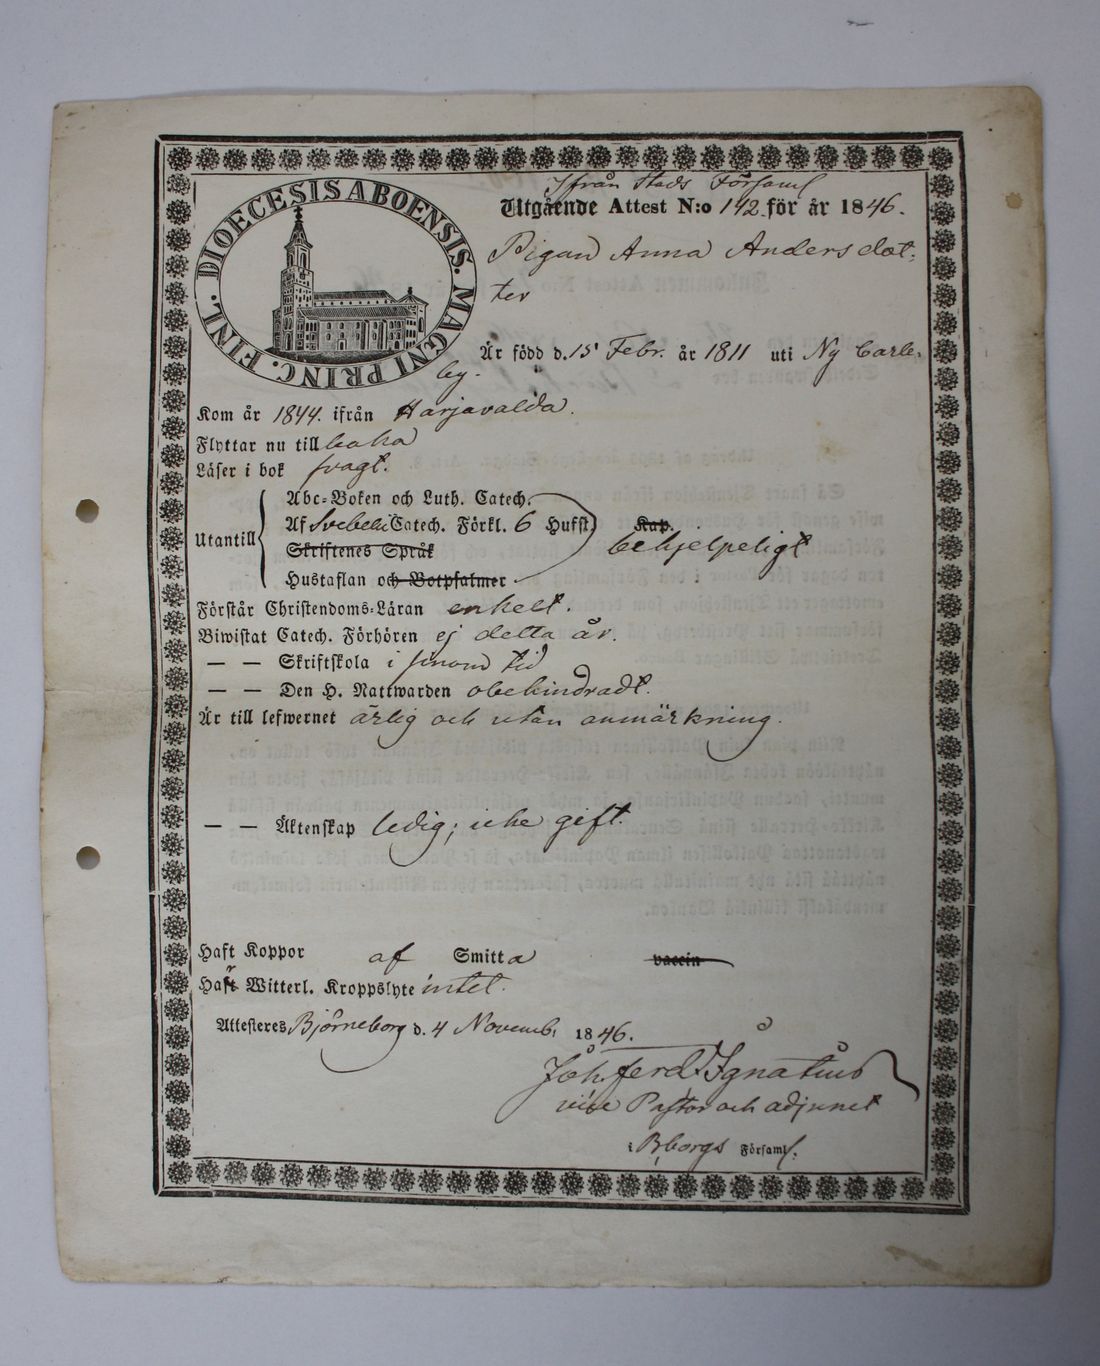 DIOECESIS ABOENSIS. MAGNI PRINC. FINL.
Ifrån Stads Församl
Utgående Attest N:o 142 för år 1846.
Pigan Anna Andersdot-
ter
Är född d. 15 Febr. år 1811 uti Ny Carle-
by.
Kom år 1844. ifrån Harjavalda.
Flyttar nu till baka
Läser i bok svagt.
Utantill
Abc-Boken och Luth. Catech.
Af Svebelii Catech. Förkl. 6 Hufst. Kap.
behjelpeligt
Skriftenes Språk
Hustaflan och Botpsalmer
Förstår Christendoms-Läran enkelt.
Biwistat Catech. Förhören ej detta år.
— — Skriftskola i sinom tid
— — Den H. Nattwarden obehindradt.
Är till lefwernet ärlig och utan anmärkning.
— — Äktenskap ledig; icke gift.
Haft Koppor af Smitta vaccin
Haft Witterl. Kroppslyte intet.
Attesteres Björneborg d. 4 Novemb. 1846.
Joh. Ferd. Ignatius
vice Pastor och adjunct
i Bborgs Församl.